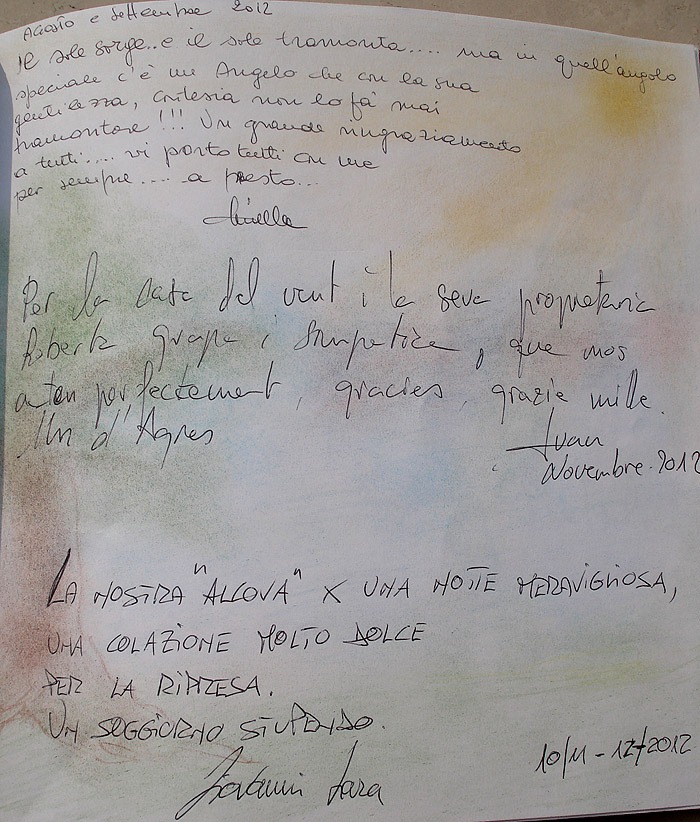 Agosto e Settembre 2012
Il sole sorge.. e il sole tramonta.... ma in quell'angolo
speciale c'è un Angelo che con la sua
gentilezza, cortesia non lo fà mai
tramontare !!! Un grande ringraziamento
a tutti.... vi porto tutti con me
per sempre.... a presto...
Per la casa del vent i la seva propietaria
Roberta guapa i simpatica, que nos
aten perfectement, gracies, grazie mille.
d'Agres
Juan
Novembre. 2012
LA NOSTRA "ALCOVA" X UNA NOTTE MERAVIGLIOSA,
UNA COLAZIONE MOLTO DOLCE
PER LA RIPRESA.
UN SOGGIORNO STUPENDO.
10/11-12/2012
Sara